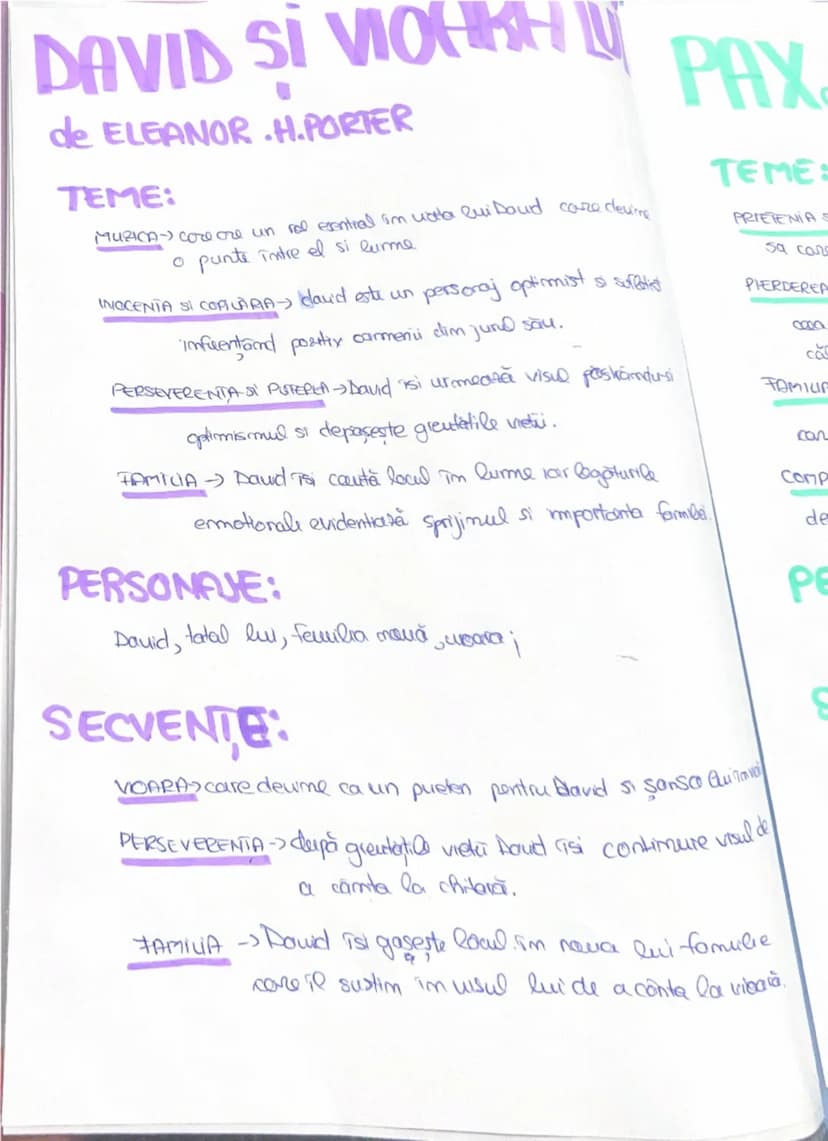 DAVID ȘI VIOARA LU
de ELEANOR .H.PORTER
TEME:
MUZICA-> care are un rol esential în viata lui David care devine
o punte între el si lume
INOCENTA SI COPILARIA-> david este un personaj optimist si sufletist
influentând pozitiv oamenii din jurul său.
PERSEVERENTA SI PUTEREA->David isi urmează visul păstrându-si
optimismul si depaseste greutatile vietii.
FAMILIA -> David îsi caută locul în lume iar legăturile
emotionale evidentiază sprijinul si importanta familiei.
PERSONAJE:
David, tatal lui, familia nouă, vioara;
SECVENȚE:
VIOARA->care devine ca un prieten pentru David si șansa lui
PERSEVERENTA -> după greutațile vietii David isi continure visul de
a cânta la chitară.
FAMILIA -> David îsi găsește locul în noua lui familie
care îl sustin în visul lui de a cânta la vioară.
PAX.
TEME:
PRIETENIA
PIERDEREA
FAMILIA
COMP
de
PE
S